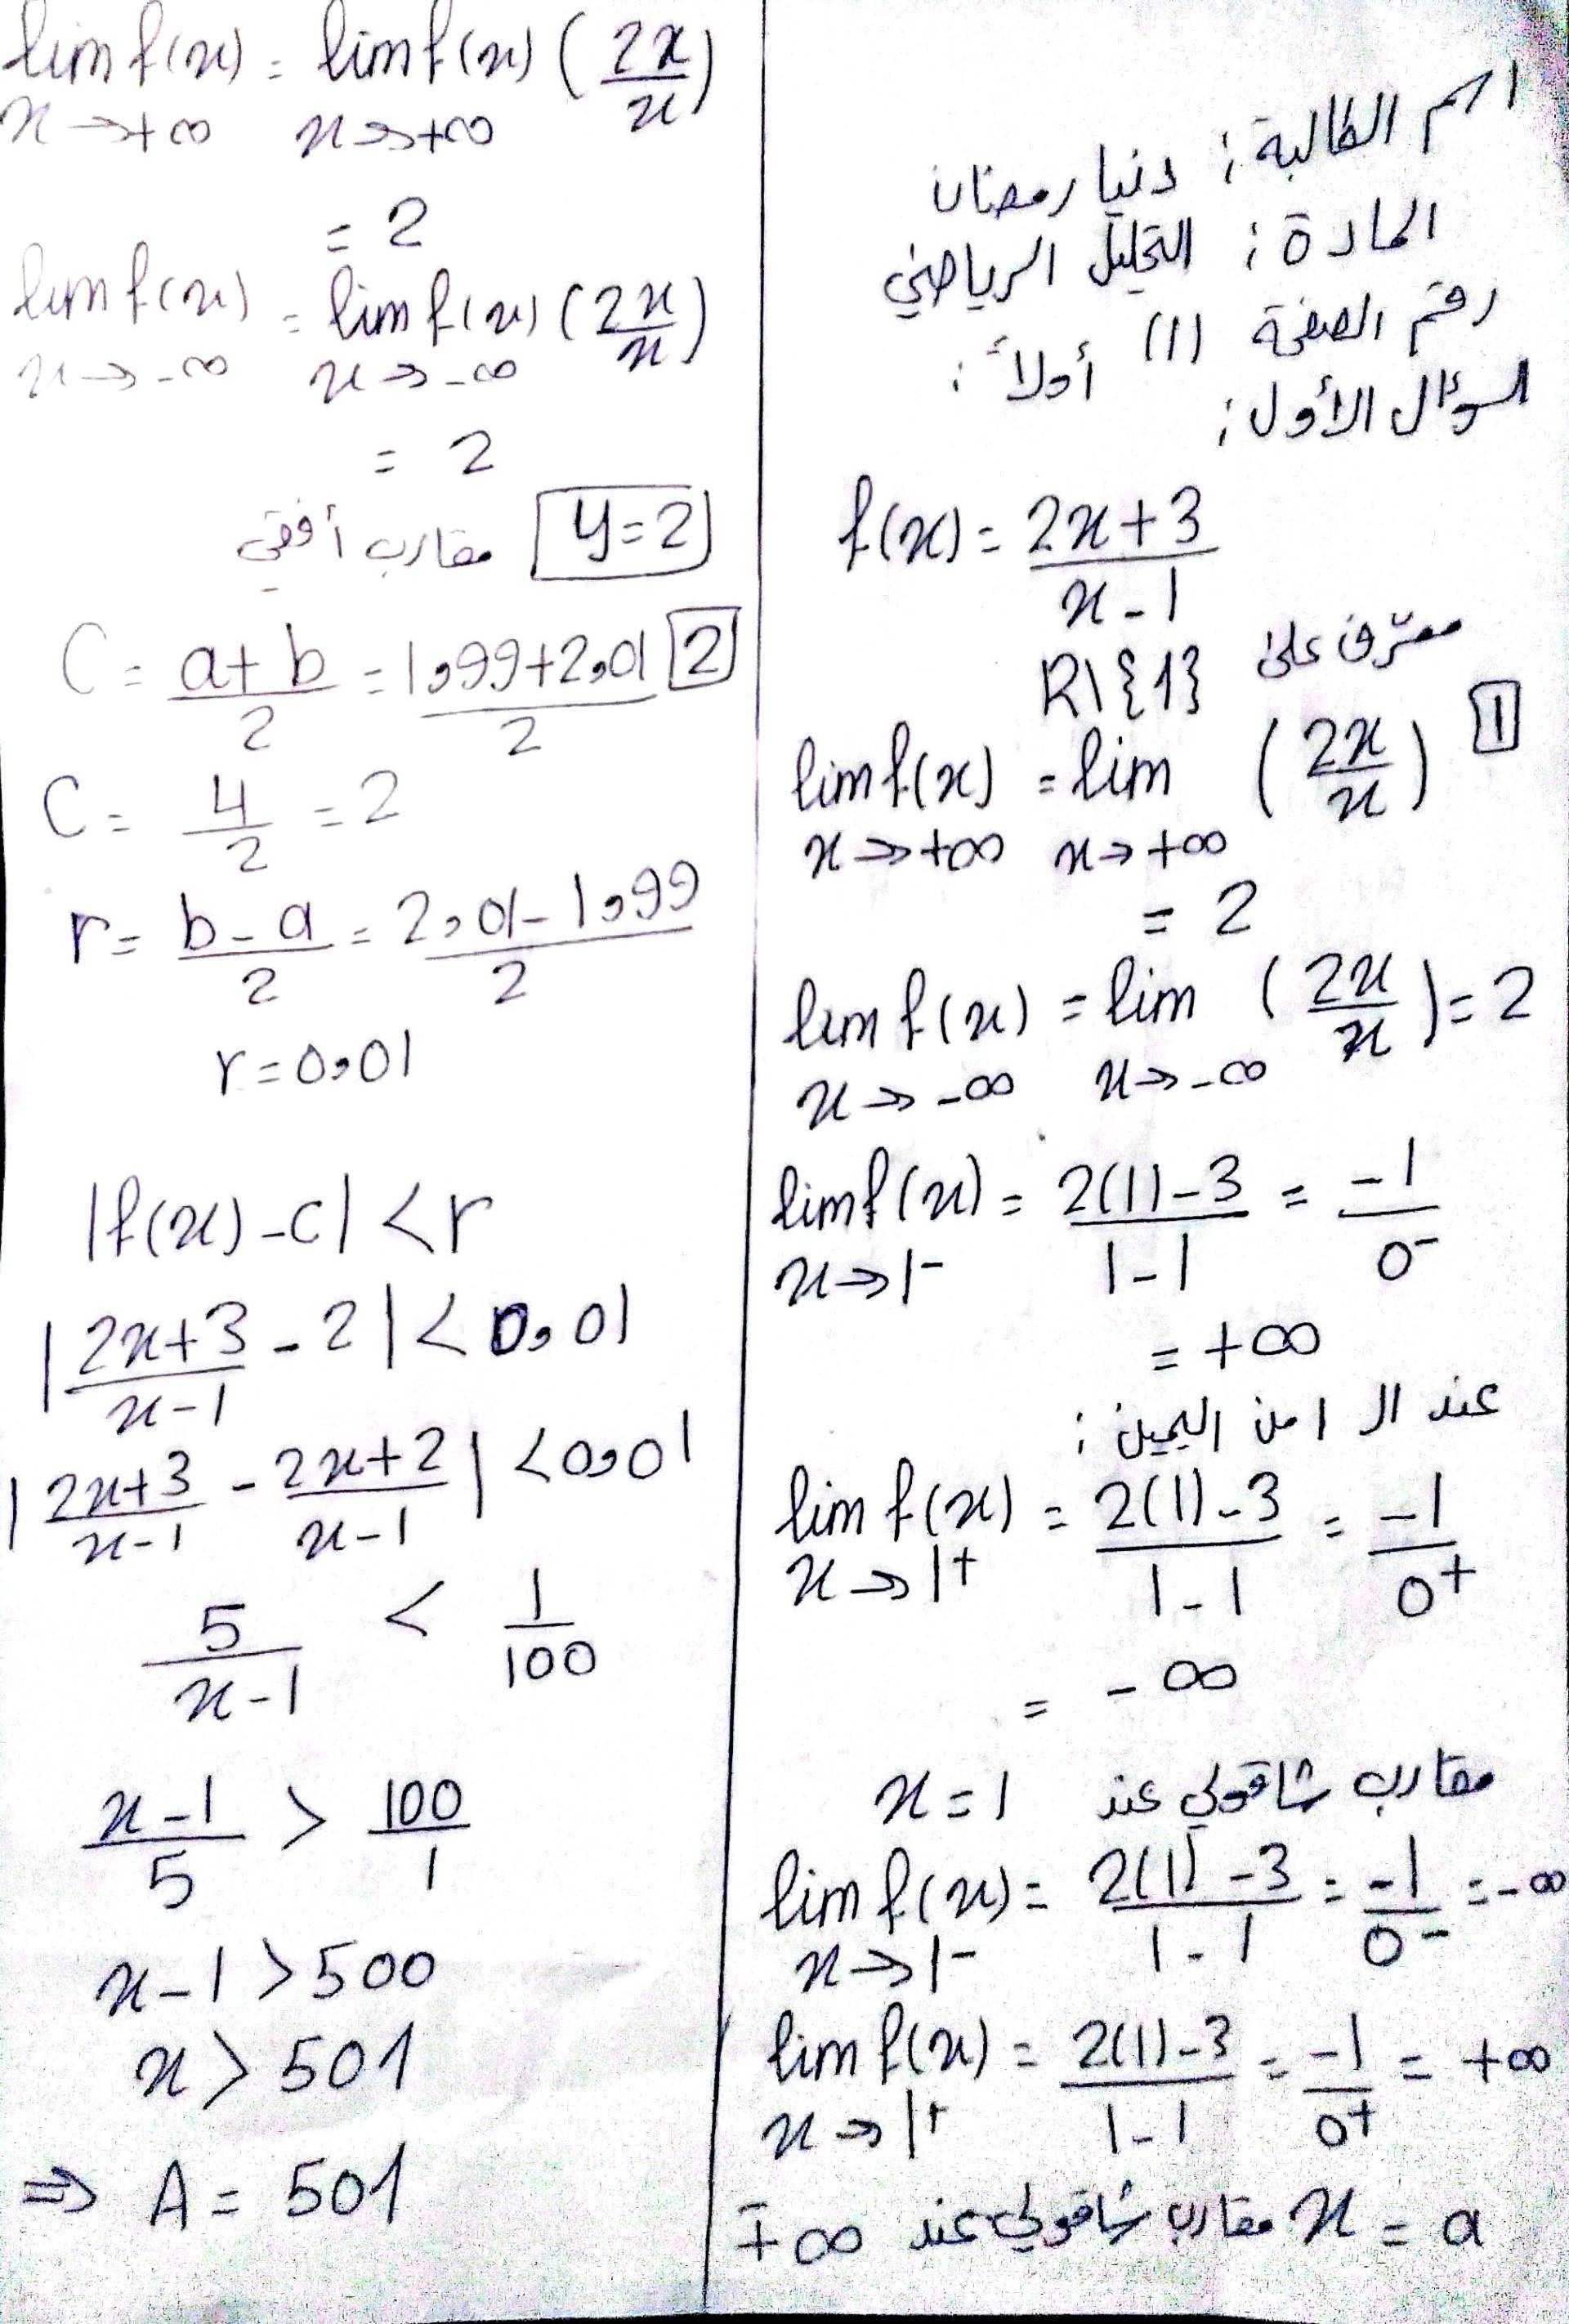 اسم الطالبة: دنيا رمضان
المادة: التحليل الرياضي
رقم الصفحة (1) أولاً:
السؤال الأول:
f(x) = \frac{2x+3}{x-1}
معرّف على R\{1}
1 lim f(x) = lim (\frac{2x}{x})
x→+∞ x→+∞
= 2
lim f(x) = lim (\frac{2x}{x}) = 2
x→-∞ x→-∞
lim f(x) = \frac{2(1)-3}{1-1} = \frac{-1}{0^-}
x→1^-
= +∞
عند ال 1 من اليمين:
lim f(x) = \frac{2(1)-3}{1-1} = \frac{-1}{0^+}
x→1^+
= -∞
مقارب شاقولي عند x = 1
lim f(x) = \frac{2(1)-3}{1-1} = \frac{-1}{0^-} = -∞
x→1^-
lim f(x) = \frac{2(1)-3}{1-1} = \frac{-1}{0^+} = +∞
x→1^+
x = a مقارب شاقولي عند ∓∞
lim f(x) = lim f(x) (\frac{2x}{x})
x→+∞ x→+∞
= 2
lim f(x) = lim f(x) (\frac{2x}{x})
x→-∞ x→-∞
= 2
y=2 مقارب أفقي
2 C = \frac{a+b}{2} = \frac{1,99+2,01}{2}
C = \frac{4}{2} = 2
r = \frac{b-a}{2} = \frac{2,01-1,99}{2}
r = 0,01
|f(x)-c| < r
|\frac{2x+3}{x-1} - 2| < 0,01
|\frac{2x+3}{x-1} - \frac{2x+2}{x-1}| < 0,01
\frac{5}{x-1} < \frac{1}{100}
\frac{x-1}{5} > \frac{100}{1}
x-1 > 500
x > 501
⇒ A = 501